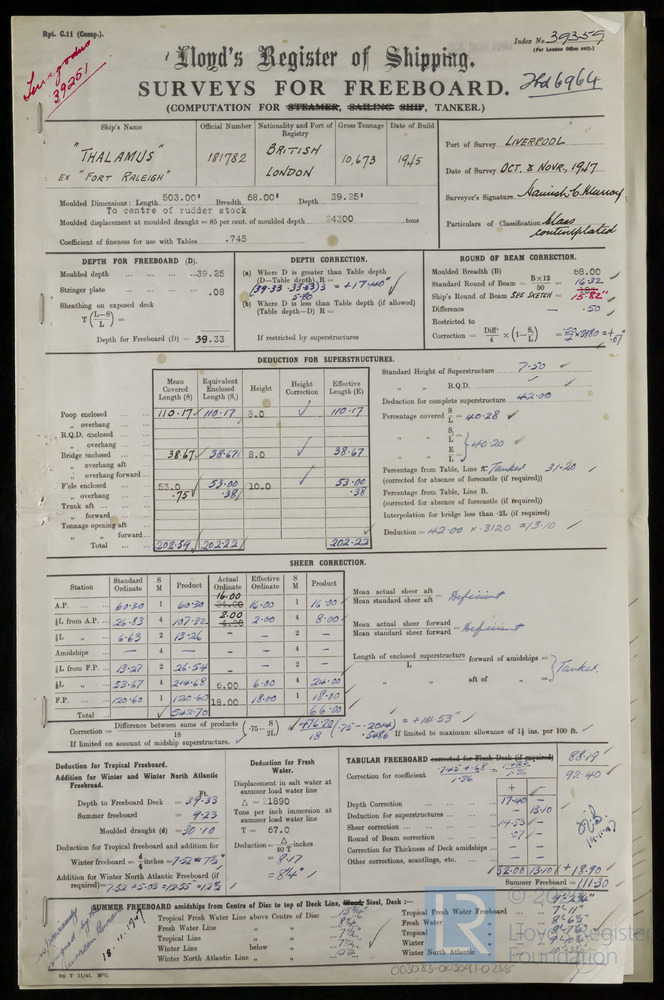 Rpt. C.11 (Comp.).
Index No. 39359
(For London Office only.)
39251
Lloyd's Register of Shipping.
SURVEYS FOR FREEBOARD.
(COMPUTATION FOR STEAMER, SAILING SHIP, TANKER.)
Ship's Name
Official Number
Nationality and Port of Registry
Gross Tonnage
Date of Build
"THALAMUS"
EX "FORT RALEIGH"
181782
BRITISH
LONDON
10,673
1945
Port of Survey LIVERPOOL
Date of Survey OCT. & NOVR., 1947
Surveyor's Signature
Particulars of Classification Class contemplated
Moulded Dimensions: Length 503.00' Breadth 68.00' Depth 39.25'
To centre of rudder stock
Moulded displacement at moulded draught = 85 per cent. of moulded depth 24300 tons
Coefficient of fineness for use with Tables .745
DEPTH FOR FREEBOARD (D).
Moulded depth 39.25
Stringer plate .08
Sheathing on exposed deck
T (L-S / L) =
Depth for Freeboard (D) = 39.33
DEPTH CORRECTION.
(a) Where D is greater than Table depth
(D-Table depth) R =
(39.33 - 33.53)3 = +17.40"
5.80
(b) Where D is less than Table depth (if allowed)
(Table depth-D) R =
If restricted by superstructures
ROUND OF BEAM CORRECTION.
Moulded Breadth (B) 68.00
Standard Round of Beam = B×12 / 50 = 16.32
Ship's Round of Beam SEE SKETCH = 15.82"
Difference .50
Restricted to
Correction = Diff. / 4 × (1 - S₁ / L)
DEDUCTION FOR SUPERSTRUCTURES.
Mean Covered Length (S)
Equivalent Enclosed Length (S₁)
Height
Height Correction
Effective Length (E)
Poop enclosed 110.17 110.17 8.0 110.17
" overhang
R.Q.D. enclosed
" overhang
Bridge enclosed 38.67 38.67 8.0 38.67
" overhang aft
" overhang forward
F'cle enclosed 53.0 53.00 10.0 53.00
" overhang .75 .38 .38
Trunk aft
" forward
Tonnage opening aft
" " forward
Total 202.59 202.22 202.22
Standard Height of Superstructure 7.50
" " R.Q.D.
Deduction for complete superstructure 42.00
Percentage covered S / L = 40.28
" " S₁ / L
" " E / L = 40.20
Percentage from Table, Line A. Tanker 31.20
(corrected for absence of forecastle (if required))
Percentage from Table, Line B.
(corrected for absence of forecastle (if required))
Interpolation for bridge less than .2L (if required)
Deduction = 42.00 × .3120 = 13.10
SHEER CORRECTION.
Station
Standard Ordinate
S M
Product
Actual Ordinate
Effective Ordinate
S M
Product
A.P. 60.30 1 60.30 16.00 16.00 1 16.00
⅙L from A.P. 26.83 4 107.32 2.00 2.00 4 8.00
⅓L " 6.63 2 13.26 - - 2 -
Amidships - 4 - - - 4 -
⅓L from F.P. 13.27 2 26.54 - - 2 -
⅙L " 53.67 4 214.68 6.00 6.00 4 24.00
F.P. 120.60 1 120.60 18.00 18.00 1 18.00
Total 542.70 66.00
Mean actual sheer aft
Mean standard sheer aft = Deficient
Mean actual sheer forward
Mean standard sheer forward = Deficient
Length of enclosed superstructure forward of amidships =
L
" " aft of " = Tanker
Correction = Difference between sums of products / 18 (.75 - S / 2L) = +476.70 / 18 (.75 - .2014) = +14.53"
.5486
If limited on account of midship superstructure.
If limited to maximum allowance of 1½ ins. per 100 ft.
Deduction for Tropical Freeboard.
Addition for Winter and Winter North Atlantic Freeboard.
Ft.
Depth to Freeboard Deck = 39.33
Summer freeboard = 9.23
Moulded draught (d) = 30.10
Deduction for Tropical freeboard and addition for
Winter freeboard = d / 4 inches = 7.52 = 7½"
Addition for Winter North Atlantic Freeboard (if required) = 7.52 + 5.03 = 12.55 = 12½"
Deduction for Fresh Water.
Displacement in salt water at summer load water line
△ = 21890
Tons per inch immersion at summer load water line
T = 67.0
Deduction = △ / 40 T inches
= 8.17
= 8¼"
TABULAR FREEBOARD corrected for Flush Deck (if required) 88.19
Correction for coefficient .745 + .68 / 1.36 = 1.425 / 1.36 92.40
+ -
Depth Correction 17.40 -
Deduction for superstructures - 13.10
Sheer correction 14.53 -
Round of Beam correction .07 -
Correction for Thickness of Deck amidships - -
Other corrections, scantlings, etc. - -
32.00 13.10 +18.90
Summer Freeboard = 111.30
SUMMER FREEBOARD amidships from Centre of Disc to top of Deck Line, Wood, Steel, Deck :-
Tropical Fresh Water Line above Centre of Disc 15¾"
Fresh Water Line " " 8¼"
Tropical Line " " 7½"
Winter Line below " 7½"
Winter North Atlantic Line " " 12½"
Tropical Fresh Water Freeboard
Fresh Water "
Tropical "
Winter "
Winter North Atlantic "
18.11.1947
5m T 11/41. MºC.
© 2020
Lloyd's Register
Foundation